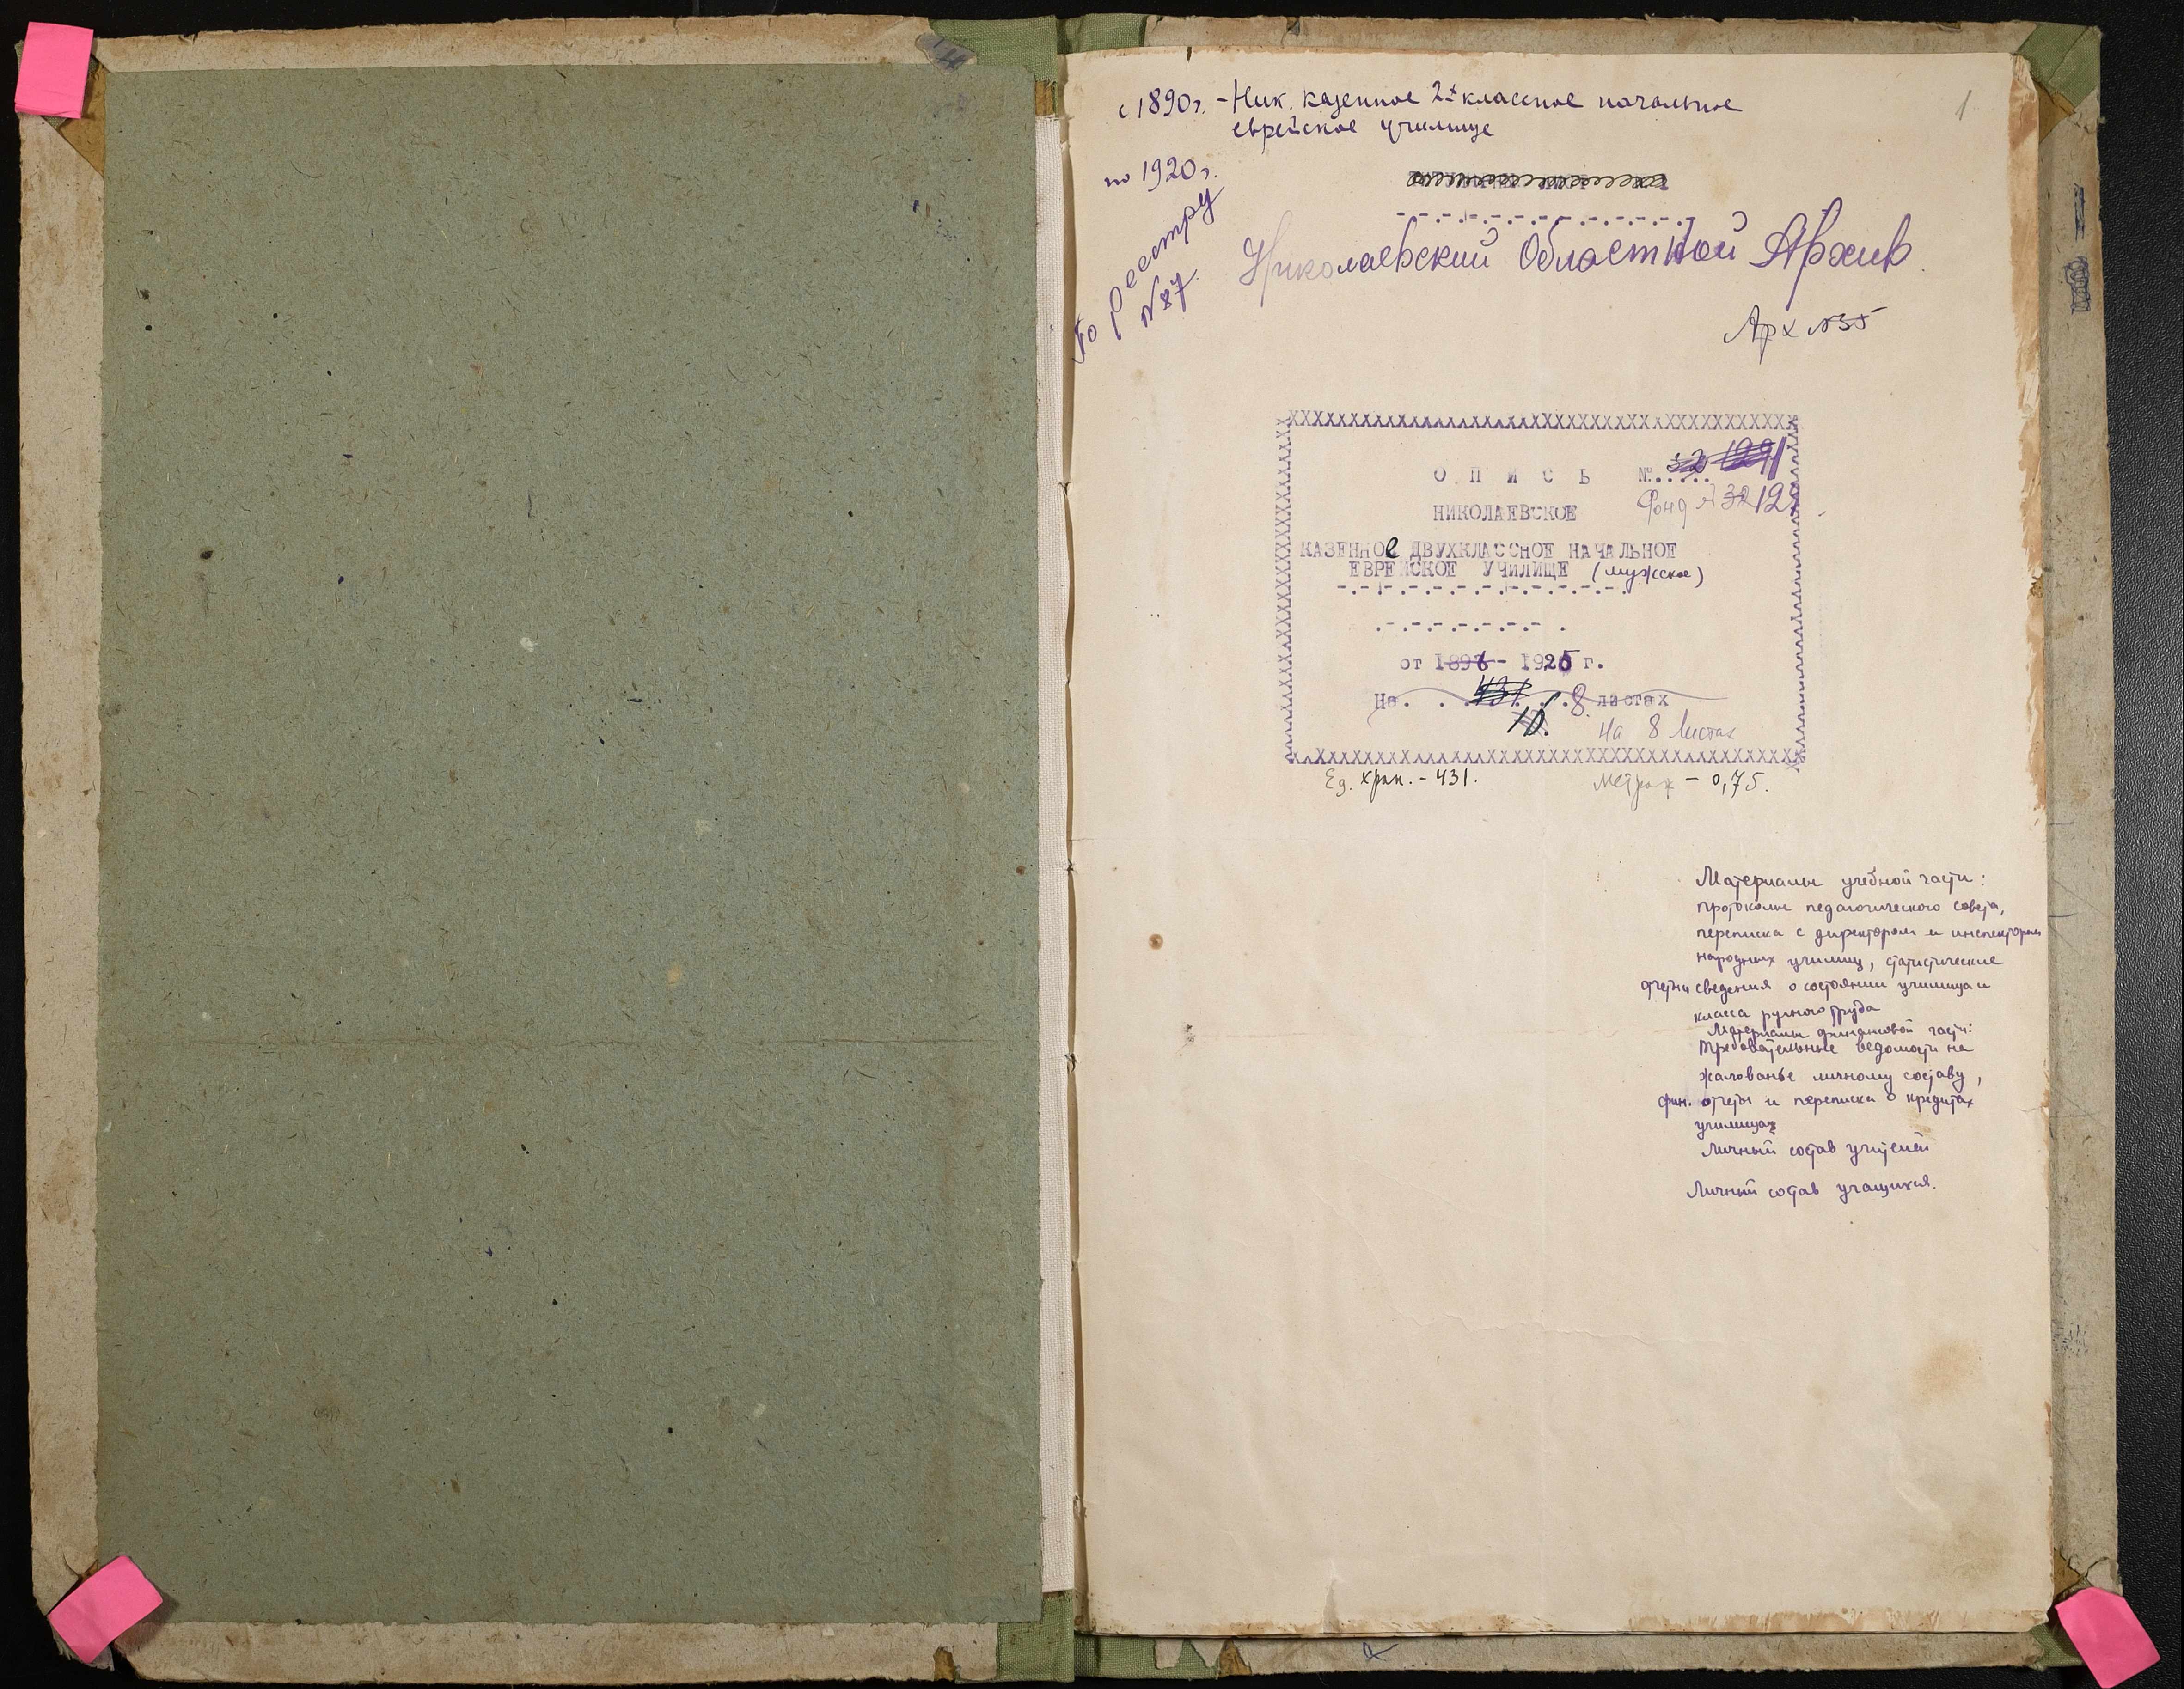 1
с 1890г. - Ник. казенное 2х классное начальное
еврейское училище
по 1920г.
По реестру
№87
Николаевский Областной Архив
Арх №35
О П И С Ь №.....
Фонд № 32
НИКОЛАЕВСКОЕ
КАЗЕННОе ДВУХКЛАССНОЕ НАЧАЛЬНОЕ
ЕВРЕЙСКОЕ УЧИЛИЩЕ (мужское)
от 1898 - 1920 г.
На. . . 431. . . 8 листах
10.
на 8 листах
Ед. хран. - 431. метраж - 0,75.
Материалы учебной части:
протоколы педагогического совета,
переписка с директором и инспектором
народных училищ, статистические
отчеты сведения о состоянии училища и
класса ручного труда
Материалы финансовой части:
требовательные ведомости на
жалованье личному составу,
фин. отчеты и переписка о кредитах
училища
Личный состав учителей
Личный состав учащихся.